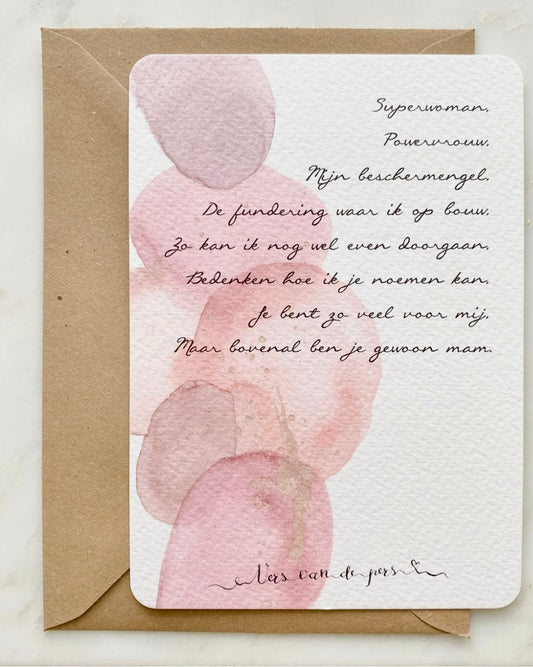 Superwoman,
Powervrouw.
Mijn beschermengel,
De fundering waar ik op bouw.
Zo kan ik nog wel even doorgaan,
Bedenken hoe ik je noemen kan,
Je bent zo veel voor mij,
Maar bovenal ben je gewoon mam.
Vers van de pers